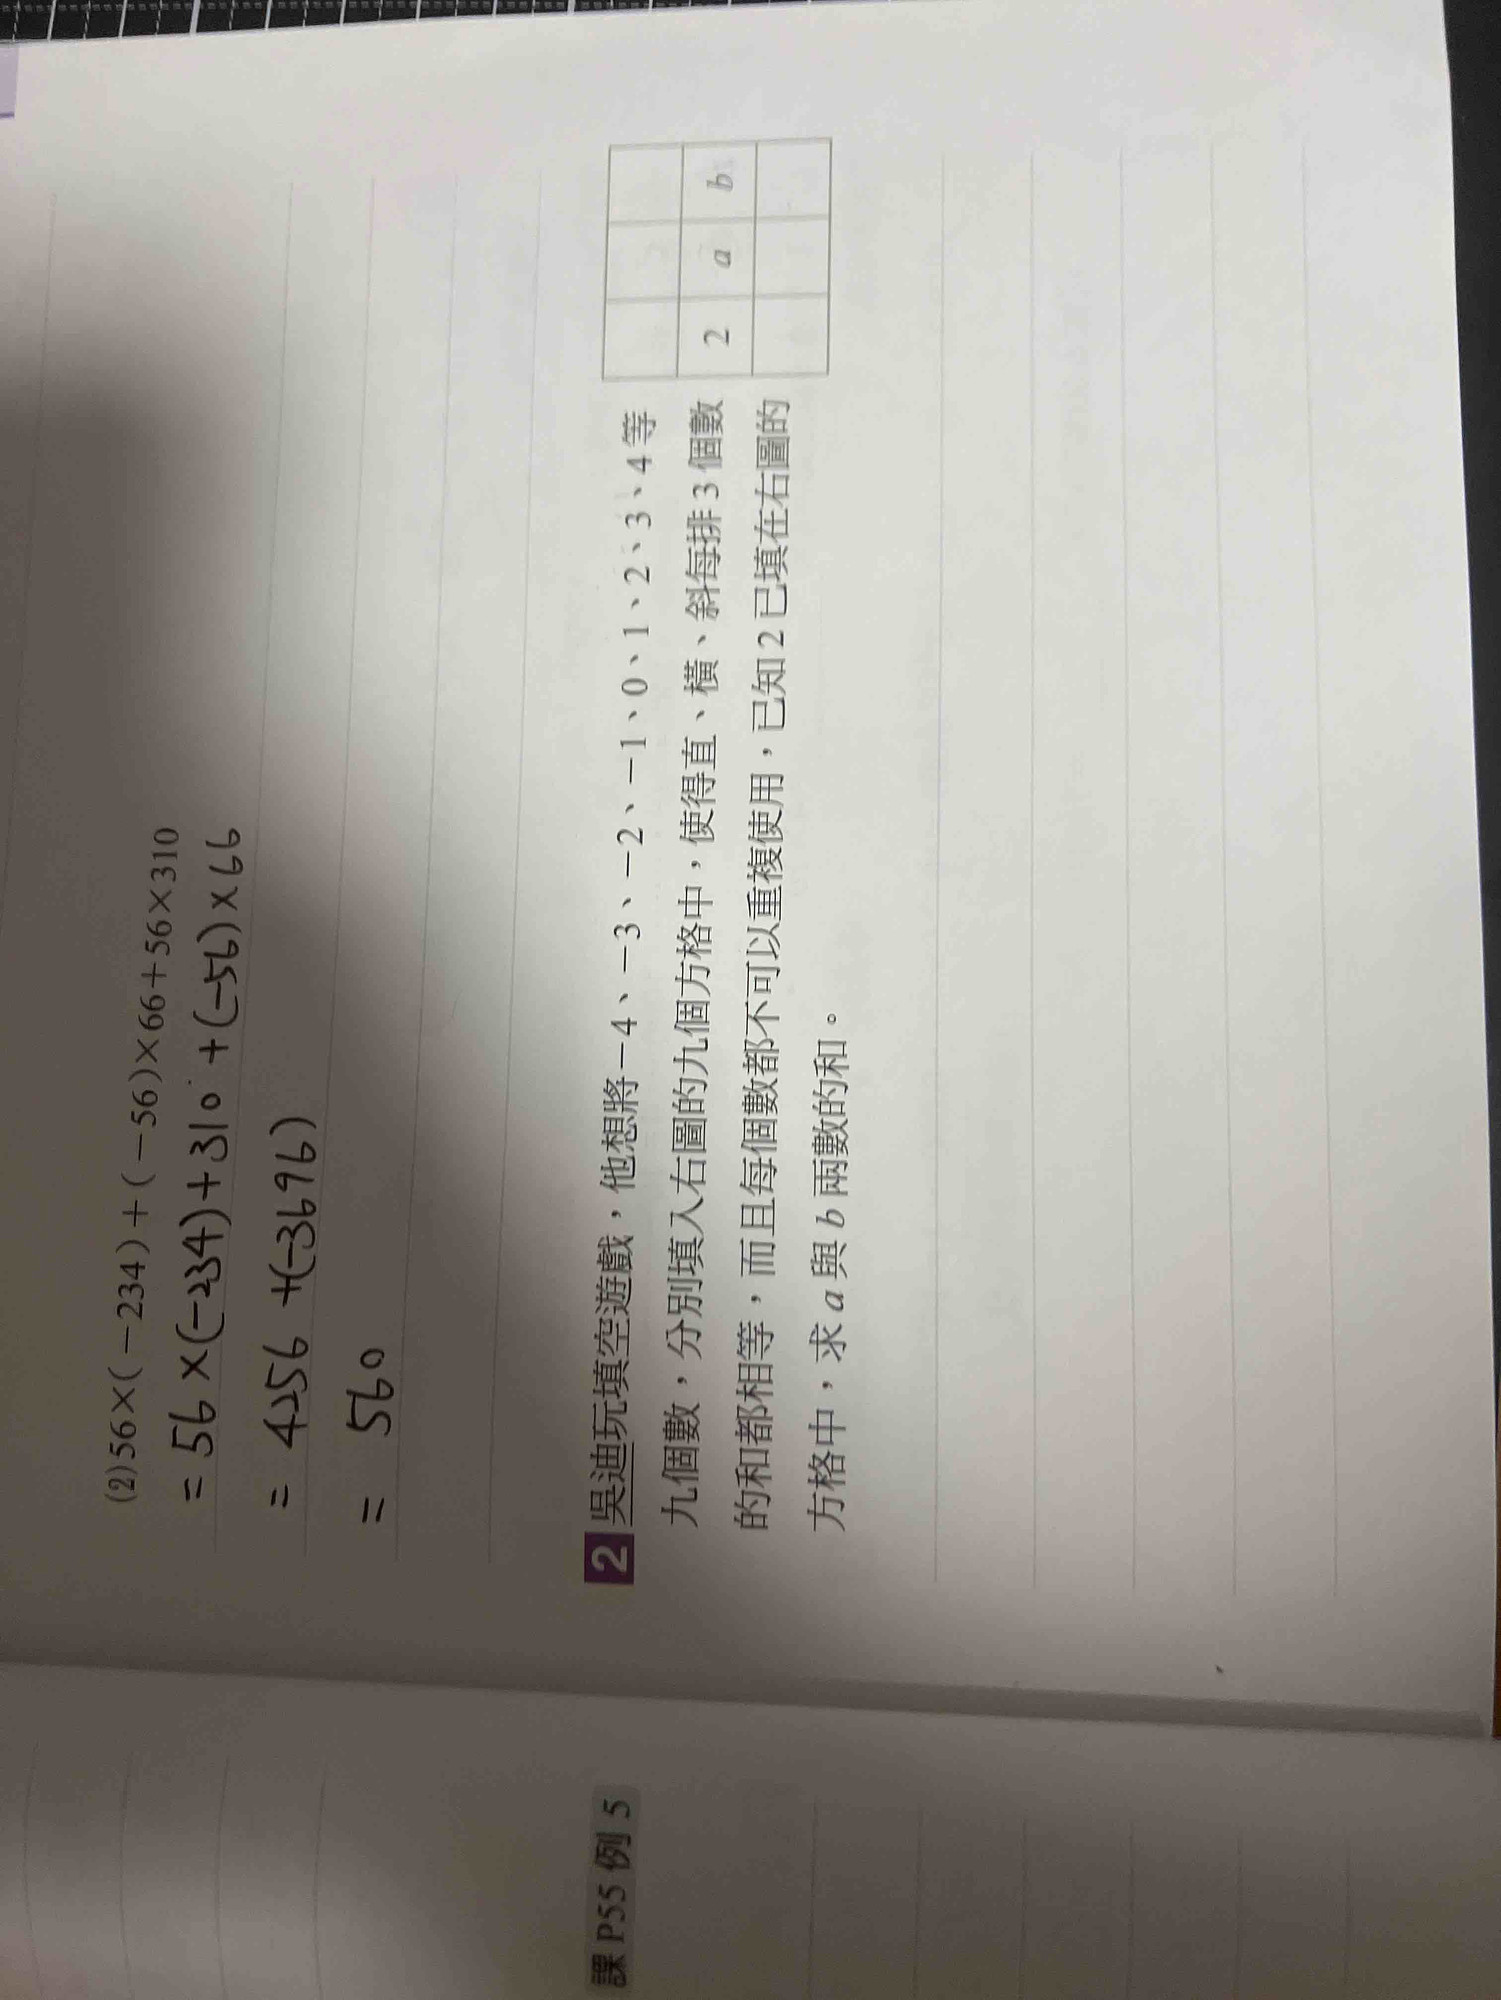 (2)56×(−234)+(−56)×66+56×310
= 56×(−234)+310+(−56)×66
= 4256 +(−3696)
= 560
2 吳迪玩填空遊戲，他想將−4、−3、−2、−1、0、1、2、3、4等
九個數，分別填入右圖的九個方格中，使得直、橫、斜每排3個數
的和都相等，而且每個數都不可以重複使用，已知2已填在右圖的
方格中，求a與b兩數的和。
2 a b
課P55例5